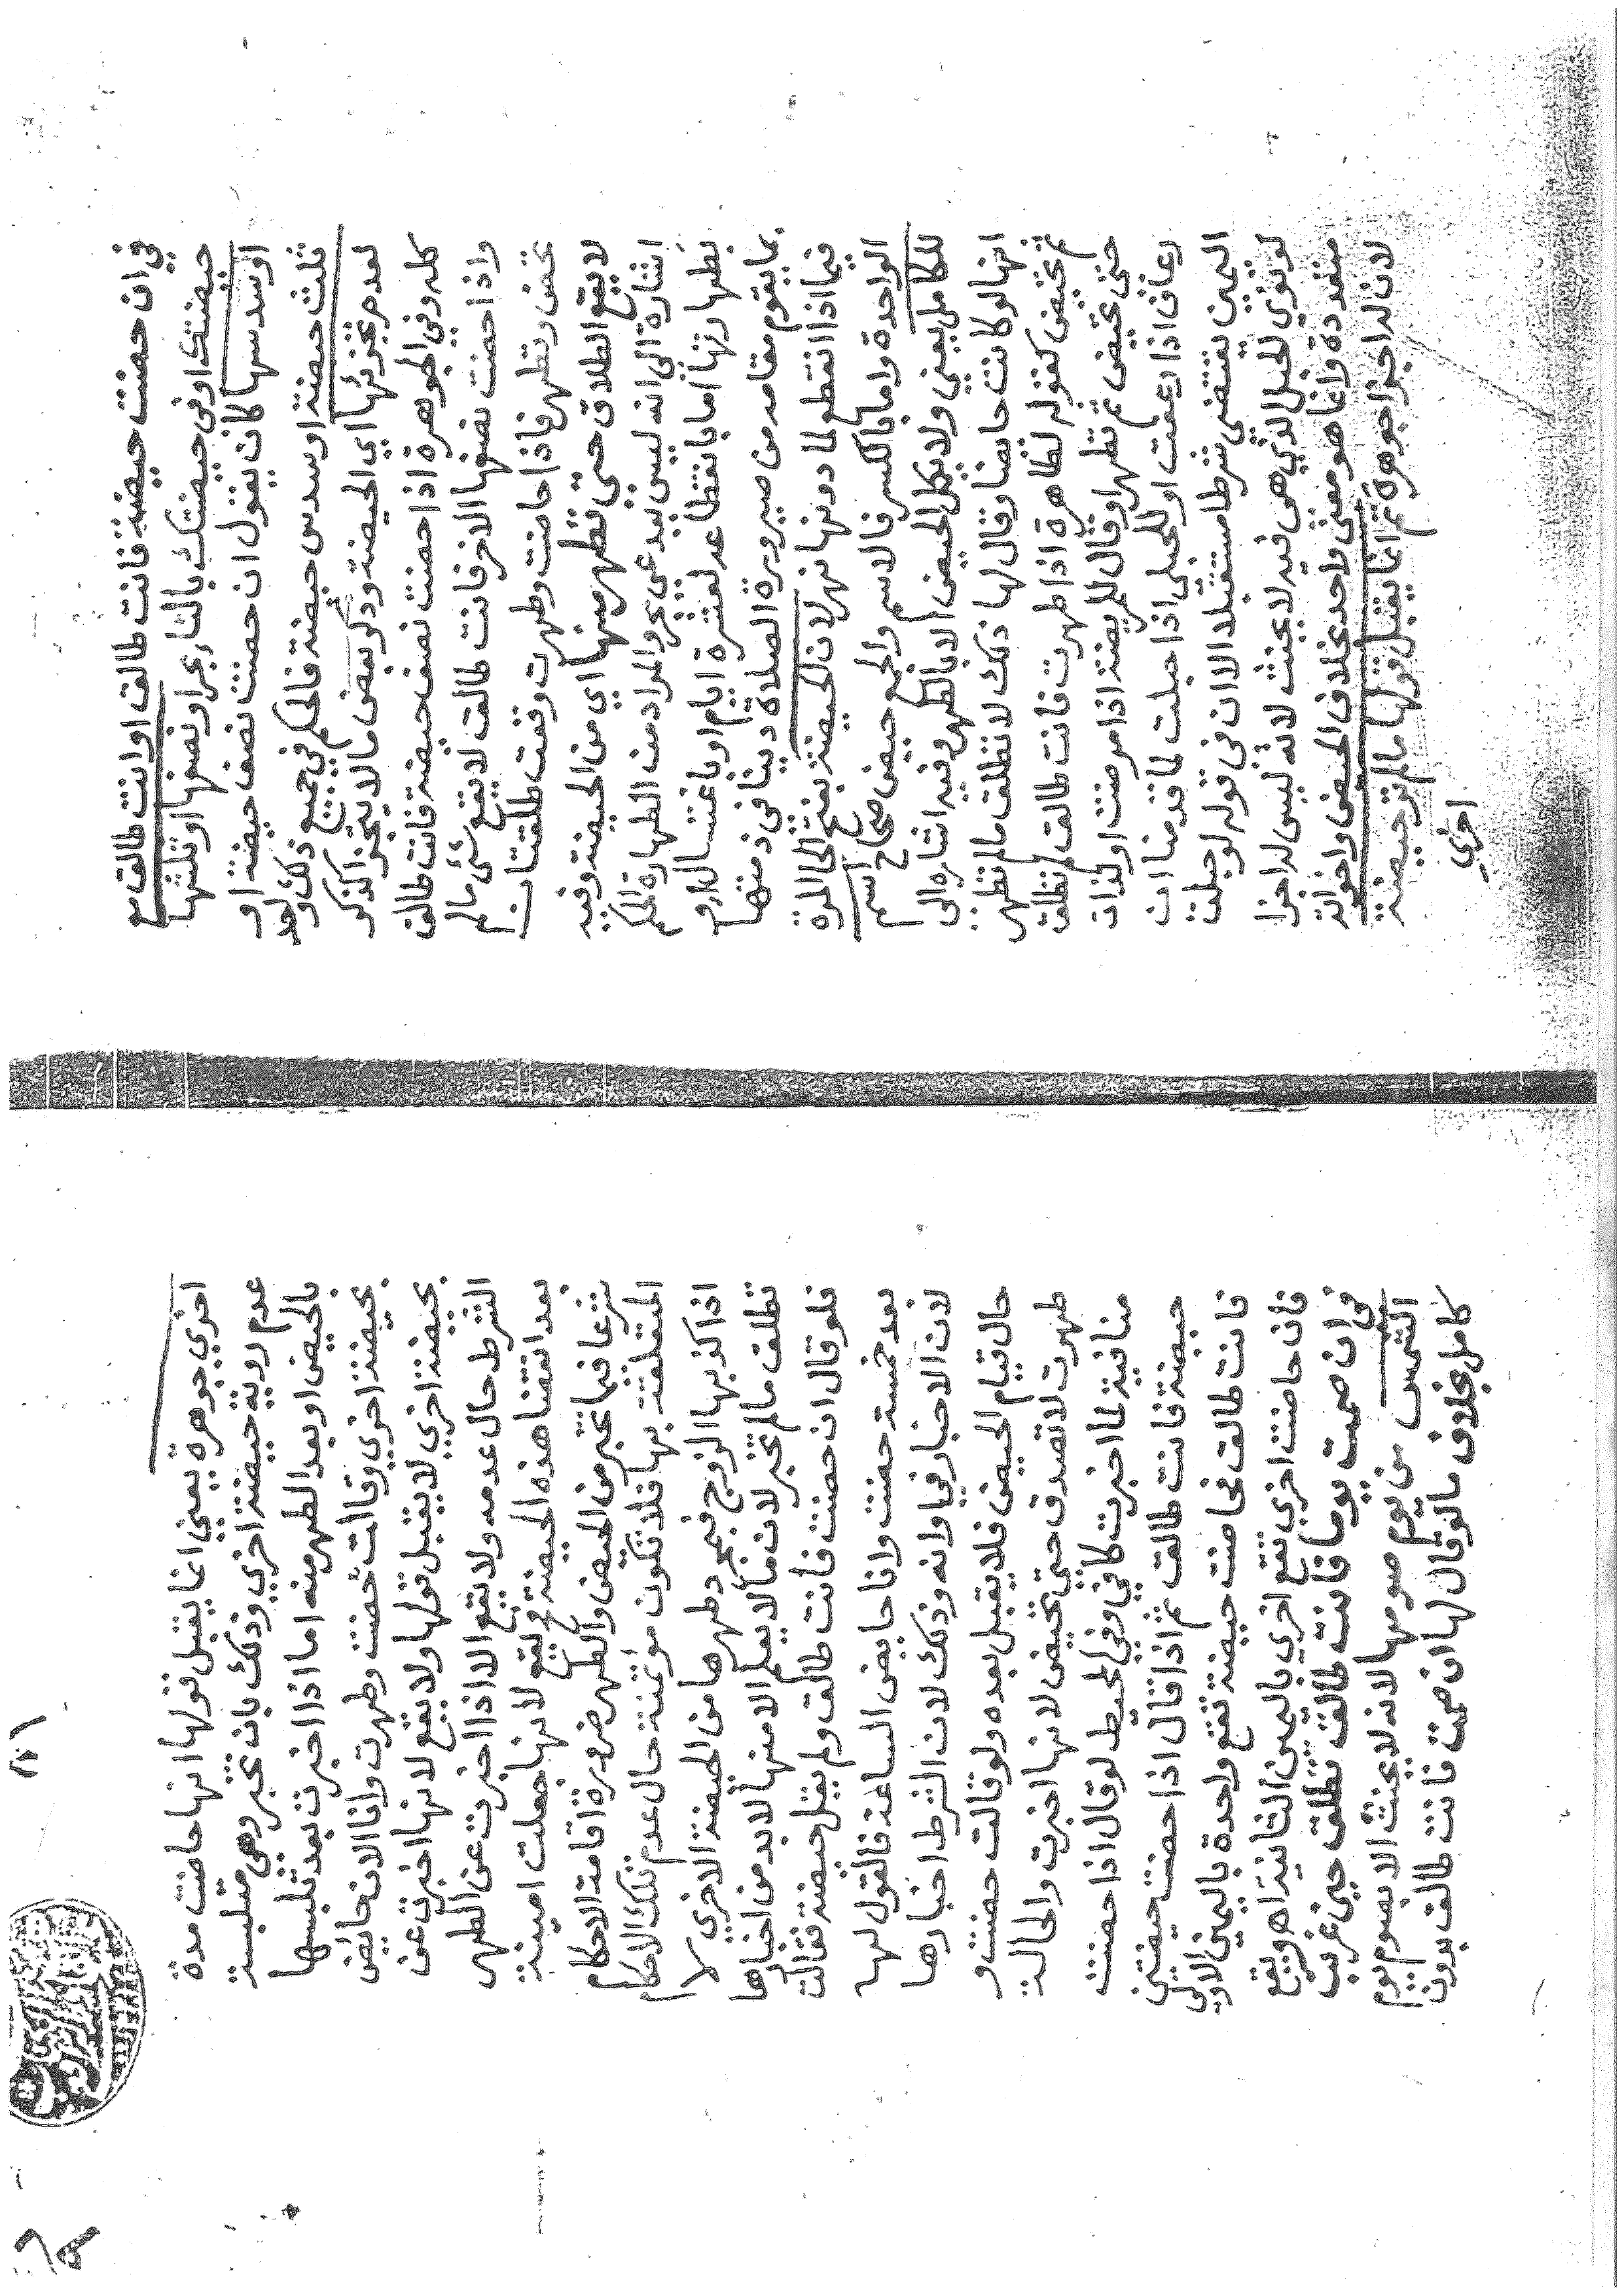 في ان حضت حيضة فانت طالق او انت طالق مع
حيضتك او في حيضتك بالتاء بحر او نصفها او ثلثها
او سدسها كان يقول ان حضت نصف حيضة او
ثلث حيضة او سدس حيضة فالحكم في جميع ذلك واحد
لعدم تجزئها اي الحيضة وذكر بعض ما لا يتجزا كذكر
كله وفي الجوهرة اذا حضت نصف حيضة فانت طالق
واذا حضت نصفها الاخر فانت طالق لا يقع شئ مالم
تحض وتطهر فاذا حاضت وطهرت وقعت طلقتان
لا يقع الطلاق حتى تطهر منها اي من الحيضة وفيه
اشارة الى انه ليس ببدعي بحر والمراد من الطهارة الحكم
بطهارتها اما بانقطاعه لعشرة ايام او باغتسال او
بما يقوم مقامه من صيرورة الصلاة دينا في ذمتها
فيما اذا انقطع لما دونها نهر لان الحيضة بفتح الحا المرة
الواحدة واما بالكسر فالاسم والجمع حيض صحاح اسم
للكامل يعني ولا يكمل الحيض الا بالطهر وفيه اشاره الى
انها لو كانت حايضا وقال لها ذلك لا تطلق مالم تطهر
ثم تحيض كقوله لطاهرة اذا طهرت فانت طالق لم تطلق
حتى تحيض ثم تطهر او قال للمريضة اذا مرضت او لذات
رعاف اذا رعفت او للحبلى اذا حبلت لما قدمنا ان
اليمين يقتضي شرطا مستقبلا الا ان في قوله لو حبلت
لو نوى الحبل الذي هي فيه لا يحنث لانه ليس له اجزا
متعددة وانما هو معنى واحد بخلاف الحيض واخواته
لان له اجزا جوهرة ثم انما يقبل قولها مالم تر حيضة
اخري
اخري جوهرة يعني انما يقبل قولها انها حاضت مدة
عدم روية حيضة اخري وذلك بان تخبر وهي متلبسة
بالحيض او بعد الطهر منه اما اذا اخبرت بعد تلبسها
بحيضة اخري وقالت حضت وطهرت وانا الان حائض
بحيضة اخري لا يقبل قولها ولا يقع لانها اخبرت عن
الشرط حال عدمه ولا يقع الا اذا اخبرت عن الطهر
بعد انقضا هذه الحيضة فح يقع لانها جعلت امينة
شرعا فيما تخبر من الحيض والطهر ضرورة اقامة الاحكام
المتعلقة بها فلا تكون مؤتمنة حال عدم تلك الاحكام
اذا كذبها الزوج فبمجرد طهرها من الحيضة الاخري لا
تطلق مالم تخبر لان ما لا يعلم الا منها لا بد من اخبارها
فلو قال ان حضت فانت طالق ولم يقل حيضة فقالت
بعد خمسة حضت وانا حايض الساعة فالقول لها
لان الاخبار في اوانه وذلك لان الشرط اخبارها
حال قيام الحيض فلا يقبل بعده ولو قالت حضت و
طهرت لا تصدق حتى تحيض لانها اخبرت والحالة
منافية لما اخبرت كافي وفي المحيط لو قال اذا حضت
حيضة فانت طالق ثم اذا قال اذا حضت حيضتين
فانت طالق فحاضت حيضة تقع واحدة باليمين الاولى
فان حاضت اخري تقع اخري باليمين الثانية اهـ ويقع
في ان صمت يوما فانت طالق تطلق حين غربت
الشمس من يوم صومها لانه لا يحنث الا بصوم يوم
كامل بخلاف ما لو قال لها ان صمت فانت طالق بدون